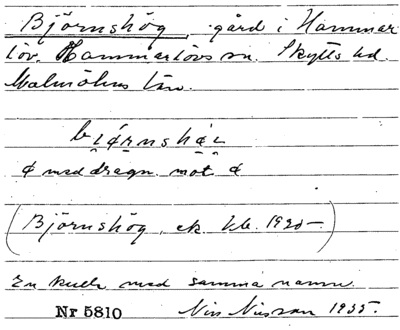 Björnshög, gård i Hammar
löv. Hammarlövs sn. Skytts hd.
Malmöhus län.
med dragn. mot
(Björnshög, ek. kb. 1920-)
En kulle med samma namn.
Nr 5810 Nils Nilsson 1935.